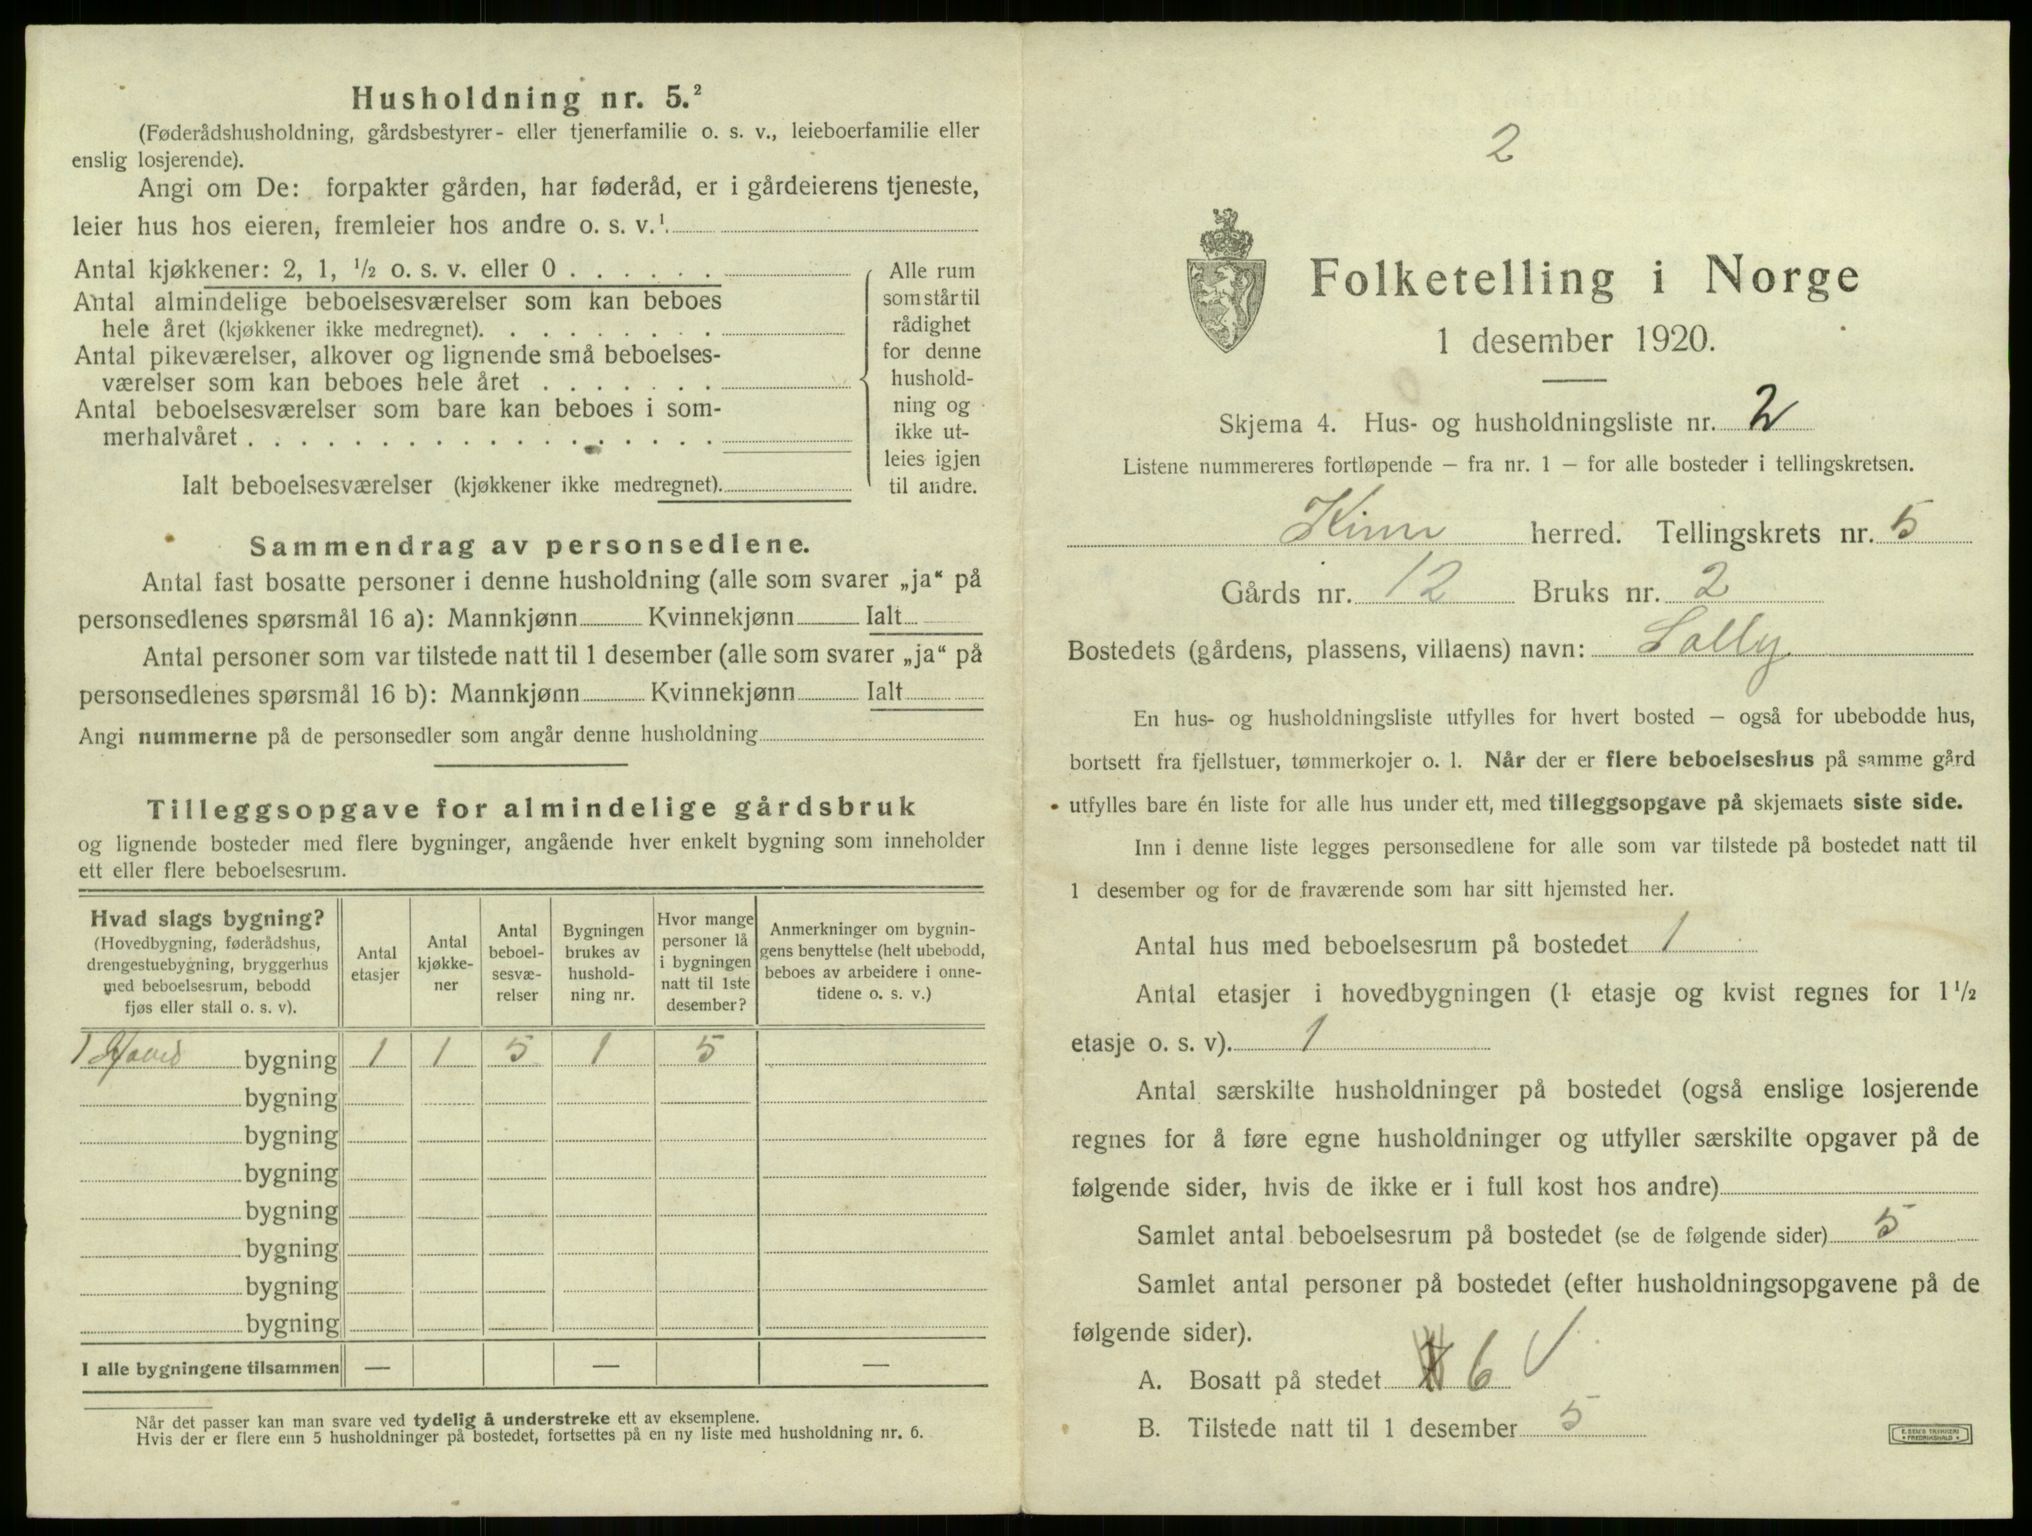 Husholdning nr. 5.²
(Føderådshusholdning, gårdsbestyrer- eller tjenerfamilie o. s. v., leieboerfamilie eller
enslig losjerende).
Angi om De: forpakter gården, har føderåd, er i gårdeierens tjeneste,
leier hus hos eieren, fremleier hos andre o. s. v.¹
Antal kjøkkener: 2, 1, ½ o. s. v. eller 0 . . . . . .
Antal almindelige beboelsesværelser som kan beboes
hele året (kjøkkener ikke medregnet). . . . . . . . .
Antal pikeværelser, alkover og lignende små beboelses-
værelser som kan beboes hele året . . . . . . .
Antal beboelsesværelser som bare kan beboes i som-
merhalvåret . . . . . . . . . . . . . . . . . .
Ialt beboelsesværelser (kjøkkener ikke medregnet).
Alle rum
som står til
rådighet
for denne
hushold-
ning og
ikke ut-
leies igjen
til andre.
Sammendrag av personsedlene.
Antal fast bosatte personer i denne husholdning (alle som svarer „ja“ på
personsedlenes spørsmål 16 a): Mannkjønn Kvinnekjønn Ialt
Antal personer som var tilstede natt til 1 desember (alle som svarer „ja“ på
personsedlenes spørsmål 16 b): Mannkjønn Kvinnekjønn Ialt
Angi nummerne på de personsedler som angår denne husholdning
Tilleggsopgave for almindelige gårdsbruk
og lignende bosteder med flere bygninger, angående hver enkelt bygning som inneholder
ett eller flere beboelsesrum.
Hvad slags bygning?
(Hovedbygning, føderådshus,
drengestuebygning, bryggerhus
med beboelsesrum, bebodd
fjøs eller stall o. s. v).
Antal
etasjer
Antal
kjøkke-
ner
Antal
beboel-
sesvæ-
relser
Bygningen
brukes av
hushold-
ning nr.
Hvor mange
personer lå
i bygningen
natt til 1ste
desember?
Anmerkninger om bygnin-
gens benyttelse (helt ubebodd,
beboes av arbeidere i onne-
tidene o. s. v.)
1 Hoved bygning 1 1 5 1 5
bygning
bygning
bygning
bygning
bygning
bygning
bygning
I alle bygningene tilsammen — — —
Når det passer kan man svare ved tydelig å understreke ett av eksemplene.
Hvis der er flere enn 5 husholdninger på bostedet, fortsettes på en ny liste med husholdning nr. 6.
2
Folketelling i Norge
1 desember 1920.
Skjema 4. Hus- og husholdningsliste nr. 2
Listene nummereres fortløpende – fra nr. 1 – for alle bosteder i tellingskretsen.
Kinn herred. Tellingskrets nr. 5
Gårds nr. 12 Bruks nr. 2
Bostedets (gårdens, plassens, villaens) navn: Solly
En hus- og husholdningsliste utfylles for hvert bosted – også for ubebodde hus,
bortsett fra fjellstuer, tømmerkojer o. l. Når der er flere beboelseshus på samme gård
utfylles bare én liste for alle hus under ett, med tilleggsopgave på skjemaets siste side.
Inn i denne liste legges personsedlene for alle som var tilstede på bostedet natt til
1 desember og for de fraværende som har sitt hjemsted her.
Antal hus med beboelsesrum på bostedet 1
Antal etasjer i hovedbygningen (1 etasje og kvist regnes for 1½
etasje o. s. v). 1
Antal særskilte husholdninger på bostedet (også enslige losjerende
regnes for å føre egne husholdninger og utfyller særskilte opgaver på de
følgende sider, hvis de ikke er i full kost hos andre)
Samlet antal beboelsesrum på bostedet (se de følgende sider) 5
Samlet antal personer på bostedet (efter husholdningsopgavene på de
følgende sider).
A. Bosatt på stedet 6 √
B. Tilstede natt til 1 desember 5
E. SEM'S TRYKKERI
FREDRIKSHALD